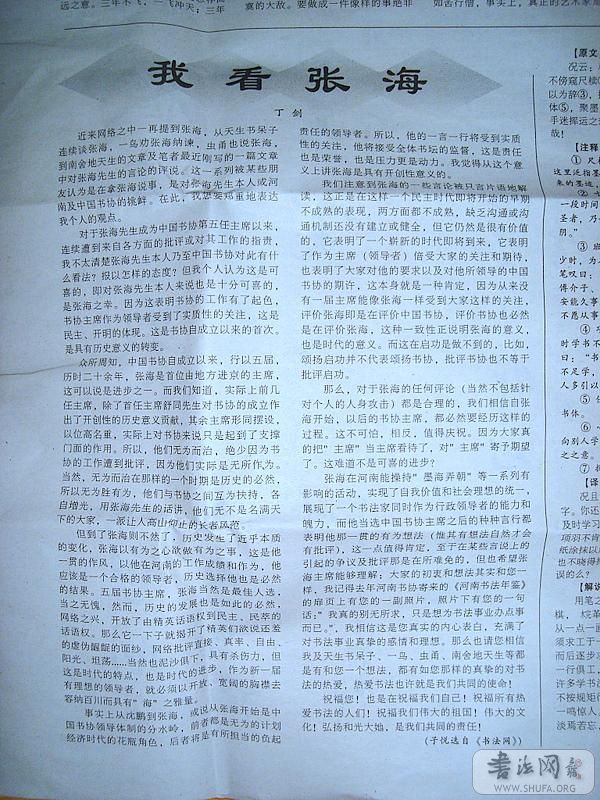 我看张海
丁 剑
近来网络之中一再提到张海，从天生书呆子
连续谈张海，一鸟劝张海纳谏，虫甬也说张海，
到南舍地天生的文章及笔者最近刚写的一篇文章
中对张海先生的言论的评说。这一系列被某些朋
友认为是在拿张海说事，是对张海先生本人或河
南及中国书协的挑衅。在此，我想要郑重地表达
我个人的观点。
对于张海先生成为中国书协第五任主席以来，
连续遭到来自各方面的批评或对其工作的指责，
我不太清楚张海先生本人乃至中国书协对此有什
么看法？报以怎样的态度？但我个人认为这是可
喜的，即对张海先生本人来说也是十分可喜的，
是张海之幸。因为这表明书协的工作有了起色，
书协主席作为领导者受到了实质性的关注，这是
民主、开明的体现。这是书协自成立以来的首次。
是具有历史意义的转变。
众所周知，中国书协自成立以来，行以五届，
历时二十余年，张海是首位由地方进京的主席，
这可以说是进步之一。而我们知道，实际上前几
任主席，除了首任主席舒同先生对书协的成立作
出了开创性的历史意义贡献，其余主席形同摆设，
以位高名重，实际上对书协来说只是起到了支撑
门面的作用。所以，他们无为而治，绝少因为书
协的工作遭到批评，因为他们实际是无所作为。
当然，无为而治在那样的一个时期是历史的必然，
所以无为胜有为，他们与书协之间互为扶持，各
自增光，用张海先生的话讲，他们无不是名满天
下的大家，一派让人高山仰止的长者风范。
但到了张海则不然了，历史发生了近乎本质
的变化，张海以有为之心欲做有为之事，这是他
一贯的作风，以他在河南的工作成绩和作为，他
应该是一个合格的领导者，历史选择他也是必然
的结果。五届书协主席，张海当然是最佳人选，
当之无愧，然而，历史的发展也是如此的必然，
网络之兴，开放了由精英话语权到民主、民萃的
话语权。那么它一下子就揭开了精英们欲说还羞
的虚伪龌龊的面纱，网络批评直接、真率、自由、
阳光、坦荡……当然也泥沙俱下，具有杀伤力，但
这是时代的特点，也是时代的进步，作为新一届
有理想的领导者，就必须以开放、宽阔的胸襟去
容纳百川而具有"海"之雅量。
事实上从沈鹏到张海，或说从张海开始是中
国书协领导体制的分水岭，前者都是无为的计划
经济时代的花瓶角色，后者将是有所担当的负起
责任的领导者。所以，他的一言一行将受到实质
性的关注，他将接受全体书坛的监督，这是责任
也是荣誉，也是压力更是动力。我觉得从这个意
义上讲张海是具有开创性意义的。
我们注意到张海的一些言论被只言片语地解
读，这正是在这样一个民主时代即将开始的早期
不成熟的表现，两方面都不成熟，缺乏沟通或沟
通机制还没有建立或健全，但它仍然是很有价值
的，它表明了一个崭新的时代即将到来，它表明
了作为主席（领导者）倍受大家的关注和期待，
也表明了大家对他的要求以及对他所领导的中国
书协的期许，这本身就是一种肯定，因为从来没
有一届主席能像张海一样受到大家这样的关注，
评价张海即是在评价中国书协，评价书协也必然
是在评价张海，这种一致性正说明张海的意义，
也是时代的意义。而这在启功是做不到的，比如，
颂扬启功并不代表颂扬书协，批评书协也不等于
批评启功。
那么，对于张海的任何评论（当然不包括针
对个人的人身攻击）都是合理的，我们相信自张
海开始，以后的书协主席，都必然要经历这样的
过程。这不可怕，相反，值得庆祝。因为大家真
的把"主席"当主席看待了，对"主席"寄予期望
了。这难道不是可喜的进步？
张海在河南能操持"墨海弄朝"等一系列有
影响的活动，实现了自我价值和社会理想的统一，
展现了一个书法家同时作为行政领导者的能力和
魄力，而他当选中国书协主席之后的种种言行都
表明他那一贯的有为想法（惟其有想法自然才会
有批评），这一点值得肯定，至于在某些言说上的
引起的争议及批评那是在所难免的，但也希望张
海主席能够理解；大家的初衷和想法其实和您一
样，我记得去年河南书协寄来的《河南书法年鉴》
的扉页上有您的一副照片，照片下有您的一句
话："我真的别无所求，只是想为书法事业办点事
而已。"，我相信这是您真实的内心表白，充满了
对书法事业真挚的感情和理想。那么也请您相信
我及天生书呆子、一鸟、虫甬、南舍地天生等都
是有和您一个想法，都有如您那样的真挚的对书
法的热爱，热爱书法也许就是我们共同的使命！
祝福您！也是在祝福我们自己！祝福所有热
爱书法的人们！祝福我们伟大的祖国！伟大的文
化！弘扬和光大她，是我们共同的责任！
（子悦选自《书法网》）
【原文
况云：
不傍窥尺牍
以为辞③，
体⑤，聚墨
手迷挥运之
哉！
【注释
书法网
WWW.SHUFA.ORG